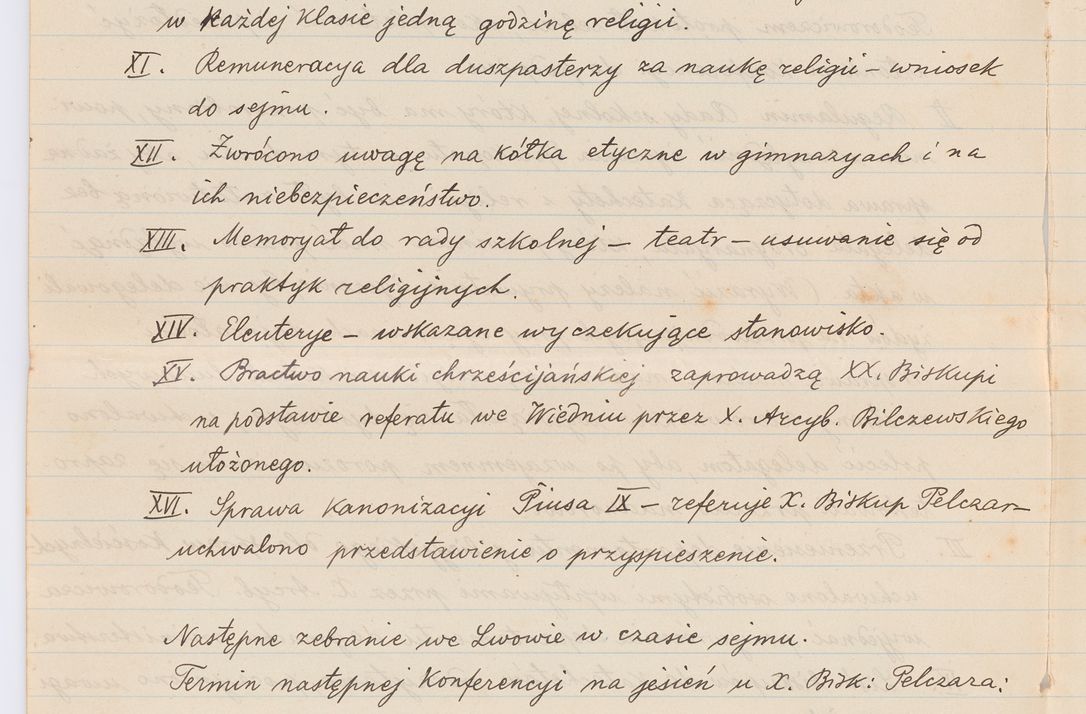 w każdej klasie jedną godzinę religii.
XI. Remuneracya dla duszpasterzy za naukę religii – wniosek
do sejmu.
XII. Zwrócono uwagę na kółka etyczne w gimnazyach i na
ich niebezpieczeństwo.
XIII. Memoryał do rady szkolnej – teatr – usuwanie się od
praktyk religijnych.
XIV. Eleuterye – wskazane wyczekujące stanowisko.
XV. Bractwo nauki chrześcijańskiej zaprowadzą XX. Biskupi
na podstawie referatu we Wiedniu przez X. Arcyb. Bilczewskiego
ułożonego.
XVI. Sprawa kanonizacyi Piusa IX – referuje X. Biskup Pelczar –
uchwalono przedstawienie o przyspieszenie.
Następne zebranie we Lwowie w czasie sejmu.
Termin następnej Konferencyi na jesień u X. Bisk: Pelczara: